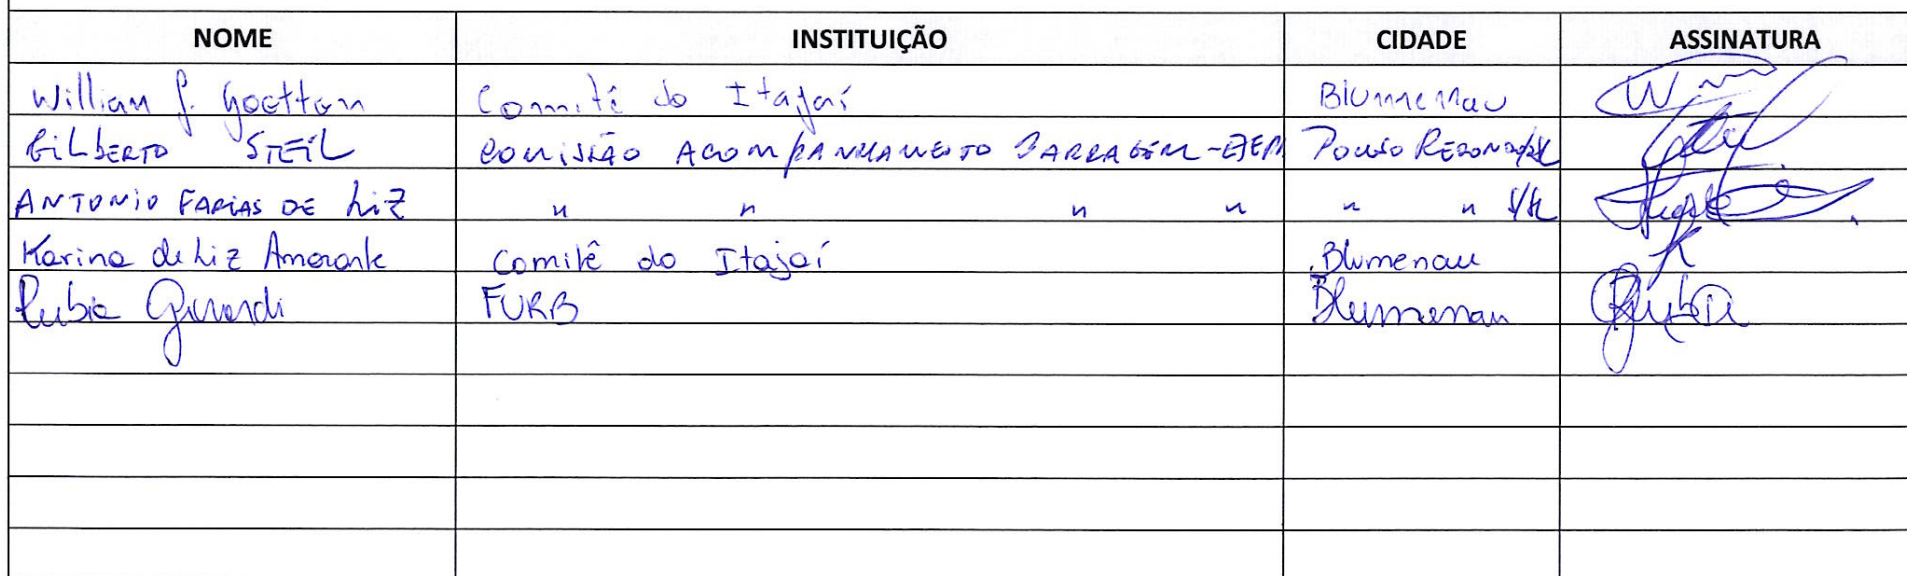 NOME INSTITUIÇÃO CIDADE ASSINATURA
William J. Goetten Comitê do Itajaí Blumenau
GILBERTO STEIL COMISSÃO ACOMPANHAMENTO BARRAGEM Pouso REDONDO
ANTONIO FARIAS DE LIZ " " " " " "
Karina de Liz Amarante Comitê do Itajaí Blumenau K
Rubia Girardi FURB Blumenau Rubia